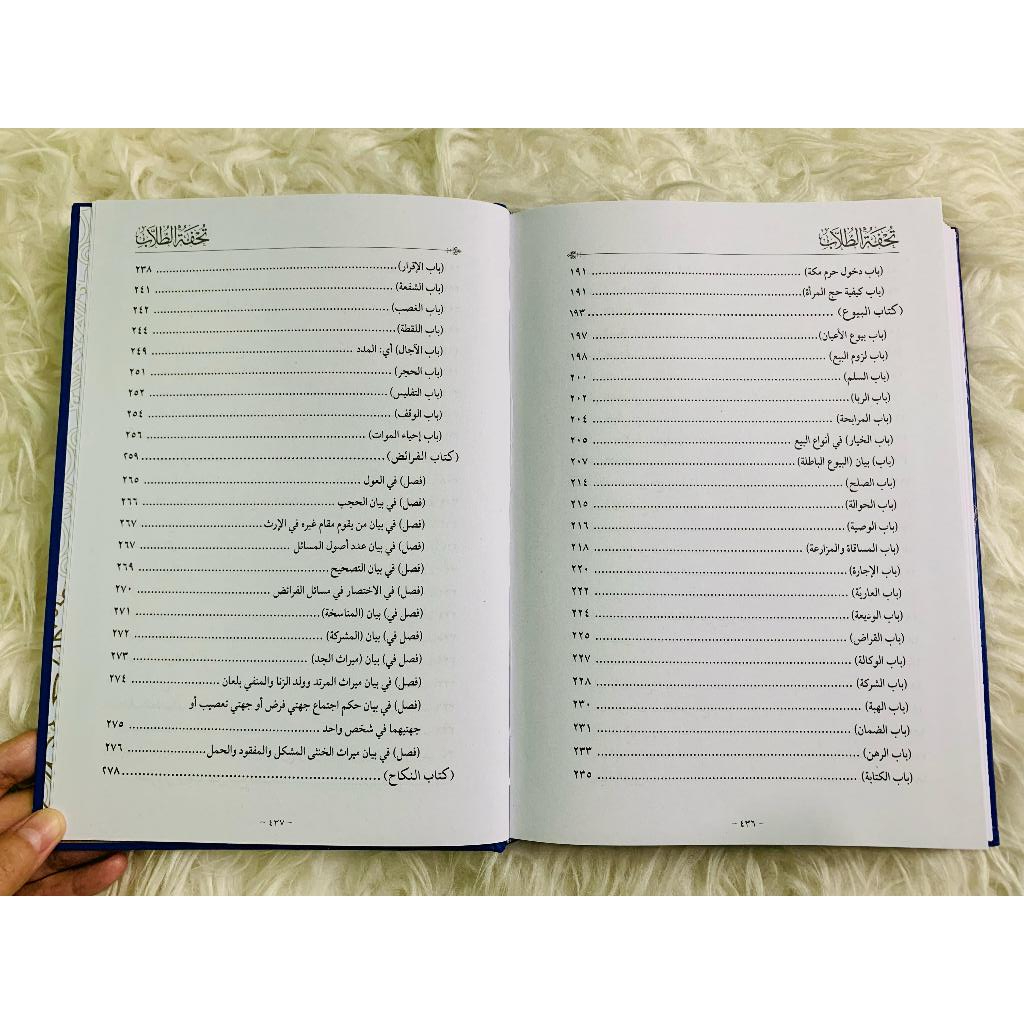 تحفة الطلاب
(باب دخول حرم مكة) ........ ١٩١
(باب كيفية حج المرأة) ........ ١٩١
(كتاب البيوع) ........ ١٩٣
(باب بيوع الأعيان) ........ ١٩٧
(باب لزوم البيع) ........ ١٩٨
(باب السلم) ........ ٢٠٠
(باب الربا) ........ ٢٠٢
(باب المرابحة) ........ ٢٠٤
(باب الخيار) في أنواع البيع ........ ٢٠٥
(باب) بيان (البيوع الباطلة) ........ ٢٠٧
(باب الصلح) ........ ٢١٤
(باب الحوالة) ........ ٢١٥
(باب الوصية) ........ ٢١٦
(باب المساقاة والمزارعة) ........ ٢١٨
(باب الإجارة) ........ ٢٢٠
(باب العاريّة) ........ ٢٢٢
(باب الوديعة) ........ ٢٢٤
(باب القراض) ........ ٢٢٥
(باب الوكالة) ........ ٢٢٧
(باب الشركة) ........ ٢٢٨
(باب الهبة) ........ ٢٣٠
(باب الضمان) ........ ٢٣١
(باب الرهن) ........ ٢٣٣
(باب الكتابة) ........ ٢٣٥
- ٤٣٦ -
تحفة الطلاب
(باب الإقرار) ........ ٢٣٨
(باب الشفعة) ........ ٢٤١
(باب الغصب) ........ ٢٤٢
(باب اللقطة) ........ ٢٤٤
(باب الآجال) أي: المدد ........ ٢٤٩
(باب الحجر) ........ ٢٥١
(باب التفليس) ........ ٢٥٢
(باب الوقف) ........ ٢٥٤
(باب إحياء الموات) ........ ٢٥٦
(كتاب الفرائض) ........ ٢٥٩
(فصل) في العول ........ ٢٦٥
(فصل) في بيان الحجب ........ ٢٦٦
(فصل) في بيان من يقوم مقام غيره في الإرث ........ ٢٦٧
(فصل) في بيان عدد أصول المسائل ........ ٢٦٧
(فصل) في بيان التصحيح ........ ٢٦٩
(فصل) في الاختصار في مسائل الفرائض ........ ٢٧٠
(فصل في) بيان (المناسخة) ........ ٢٧١
(فصل في) بيان (المشركة) ........ ٢٧٢
(فصل في) بيان (ميراث الجد) ........ ٢٧٣
(فصل) في بيان ميراث المرتد وولد الزنا والمنفي بلعان ........ ٢٧٤
(فصل) في بيان حكم اجتماع جهتي فرض أو جهتي تعصيب أو
جهتيهما في شخص واحد ........ ٢٧٥
(فصل) في بيان ميراث الخنثى المشكل والمفقود والحمل ........ ٢٧٦
(كتاب النكاح) ........ ٢٧٨
- ٤٣٧ -